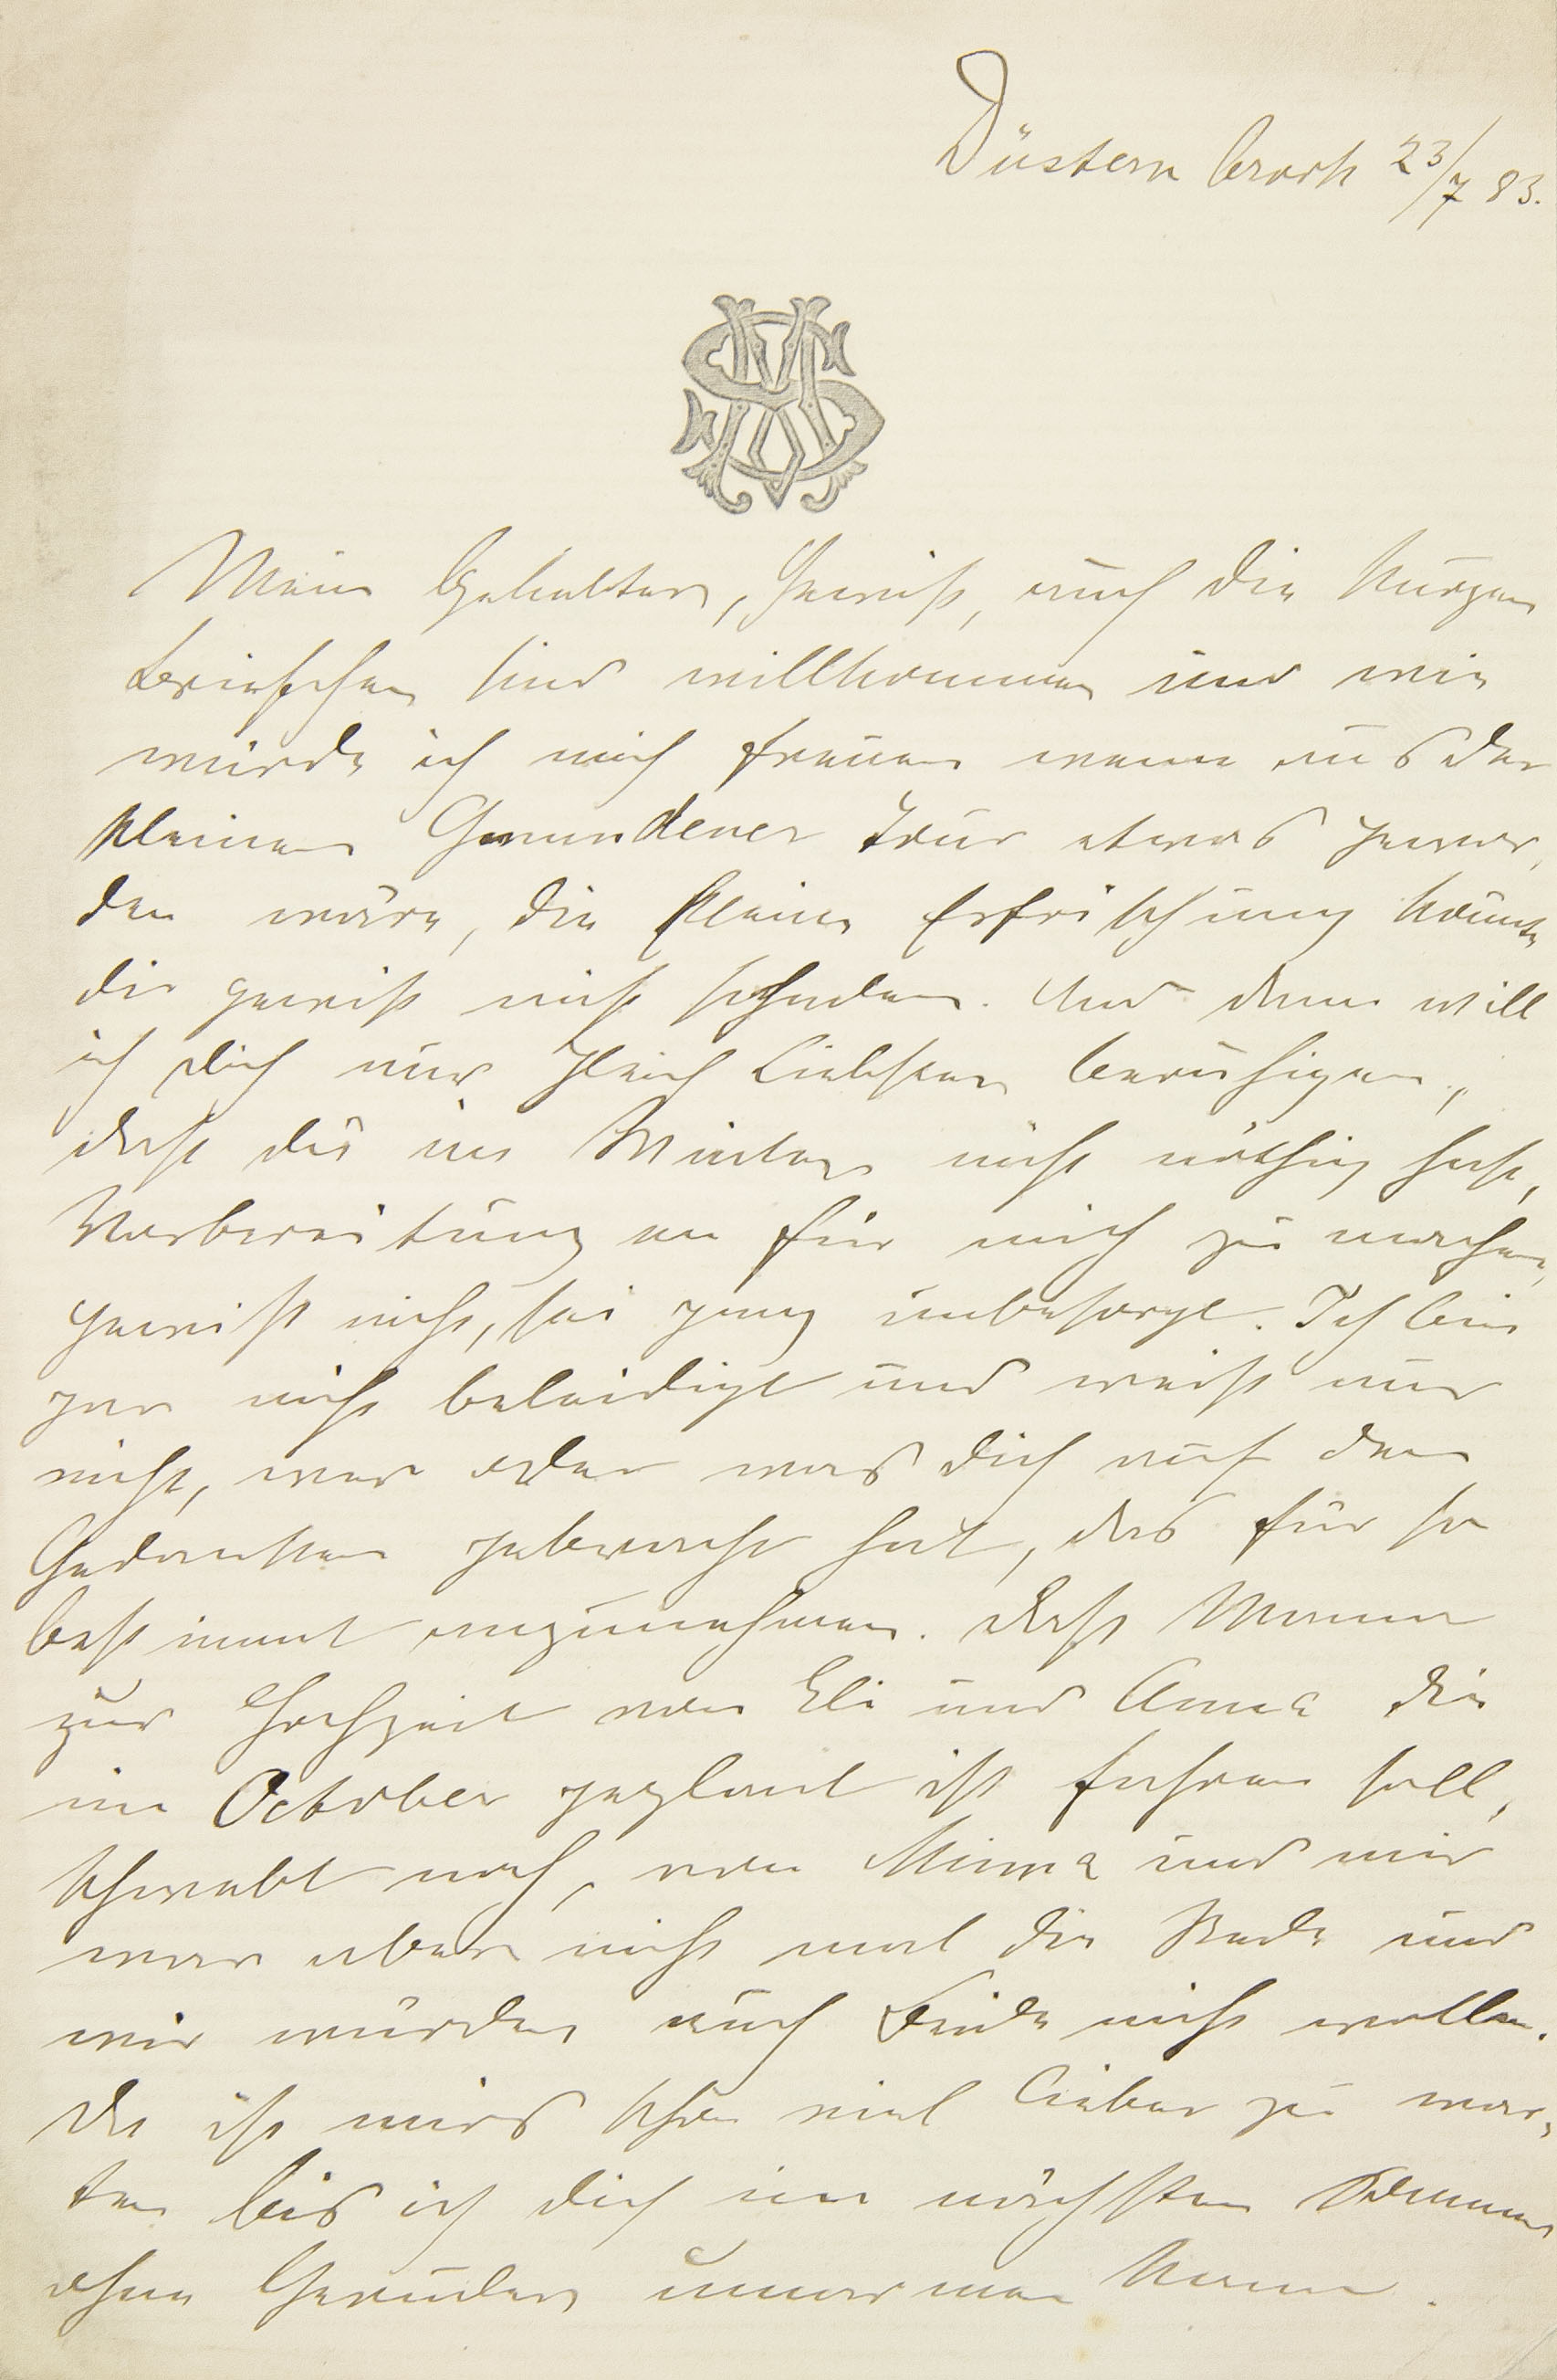 Düsternbrook 23/7 83.
MS
Mein Geliebter, Gewiß, auch die kurzen
Briefchen sind willkommen und wie
würde ich mich freuen wenn aus der
kleinen Gmundener Tour etwas gewor,
den wäre, die kleine Erfrischung könnte
dir gewiß nicht schaden. Und dann will
ich dich nur gleich Liebster beruhigen,
daß du im Winter nicht nöthig hast,
Vorbereitungen für mich zu machen,
gewiß nicht, sei ganz unbesorgt. Ich bin
gar nicht beleidigt und weiß nur
nicht, wer oder was dich auf den
Gedanken gebracht hat, das für so
bestimmt anzunehmen. Daß Mama
zur Hochzeit von Eli und Anna die
im October geplant ist fahren soll,
schwebt noch, von Minna und mir
war aber nicht mal die Rede und
wir würden auch Beide nicht wollen.
Da ist mirs schon viel lieber zu war,
ten bis ich dich im nächsten Sommer
ohne Geruder umarmen kann.